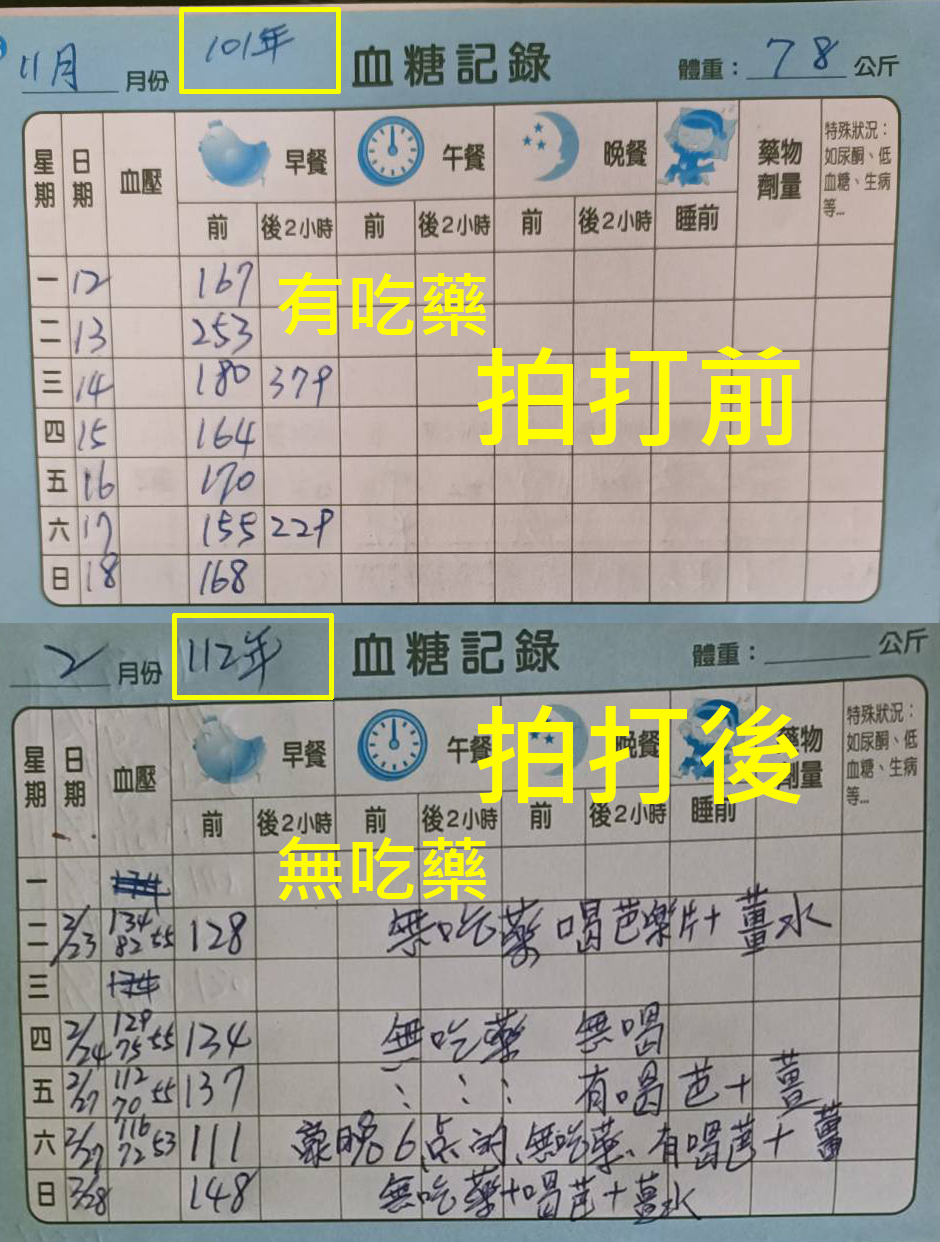 11月 月份 101年 血糖記錄 體重：78 公斤
星期 日期 血壓 早餐 午餐 晚餐 藥物劑量 特殊狀況：如尿酮、低血糖、生病等...
前 後2小時 前 後2小時 前 後2小時 睡前
一 12 167
有吃藥
二 13 253
三 14 180 379
拍打前
四 15 164
五 16 170
六 17 155 229
日 18 168
2 月份 112年 血糖記錄 體重： 公斤
星期 日期 血壓 早餐 午餐 晚餐 藥物劑量 特殊狀況：如尿酮、低血糖、生病等...
拍打後
前 後2小時 前 後2小時 前 後2小時 睡前
無吃藥
一
二 2/23 134 82 55 128 無吃藥 喝芭樂片+薑水
三
四 2/24 129 75 55 134 無吃藥 無喝
五 2/27 112 70 55 137 有喝芭+薑
六 2/27 116 72 53 111 晚6点的、無吃藥、有喝芭+薑
日 2/28 148 無吃藥+喝芭+薑水